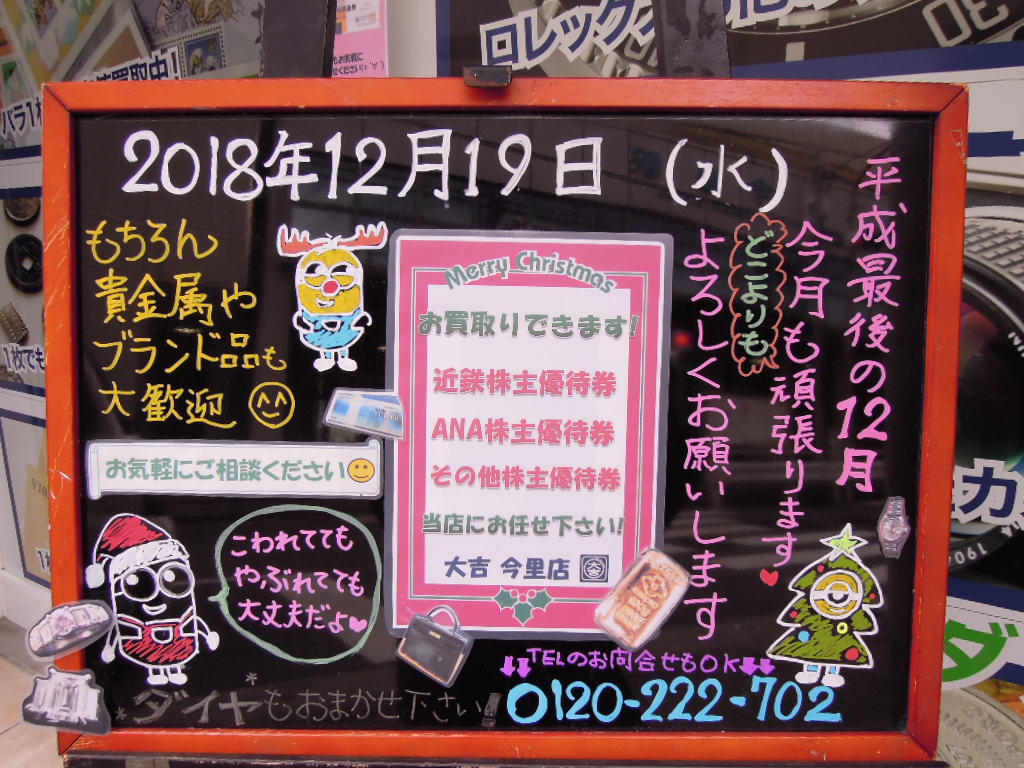 2018年12月19日 (水)
平成最後の12月
今月も頑張ります
どこよりも
よろしくお願いします
もちろん
貴金属や
ブランド品も
大歓迎
Merry Christmas
お買取りできます!
近鉄株主優待券
ANA株主優待券
その他株主優待券
当店にお任せ下さい!
大吉 今里店
お気軽にご相談ください
こわれてても
やぶれてても
大丈夫だよ
ダイヤもおまかせ下さい!
TELのお問合せもOK
0120-222-702
ロレックス
買取中!
バラ1枚
1枚でも
カ
ダ